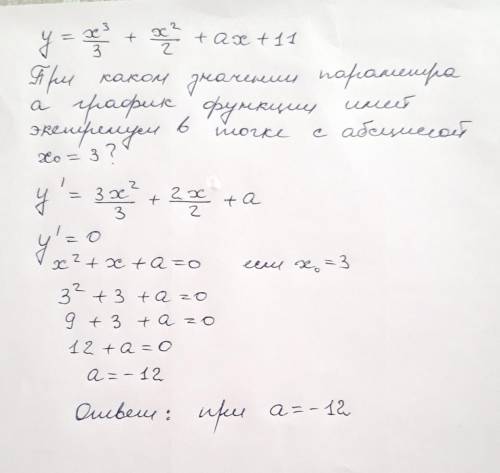 y = x³/3 + x²/2 + ax + 11
При каком значении параметра
а график функции имеет
экстремум в точке с абсциссой
x₀ = 3 ?
y' = 3x²/3 + 2x/2 + a
y' = 0
x² + x + a = 0 если x₀ = 3
3² + 3 + a = 0
9 + 3 + a = 0
12 + a = 0
a = - 12
Ответ: при a = - 12